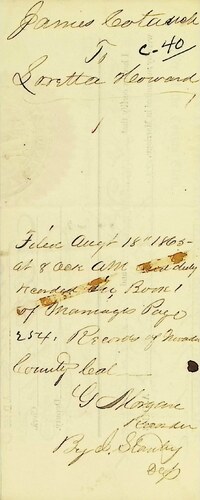 James Cotauch
To
C-40
Loretta Howard
Filed Augt 18th 1865
at 8 Ock AM and duly
recorded in Book 1
of Marriages Page
254. Records of
County Cal
G Morgan
Recorder
By S. Stanley
Dep